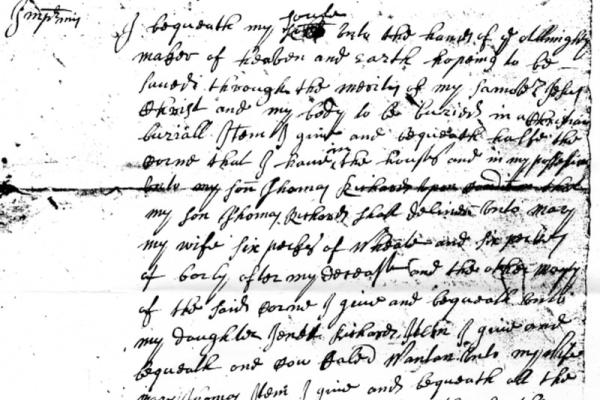 Imprimis
I bequeath my soule
into the hands of ye Allmighty
maker of heaven and Earth hopeing to be
saved through the merits of my Saviour Jesus
Christ and my body to be buried in a Christian
buriall Item I give and bequeath halfe the
Corne that I have in the house and in my possession
unto my son Thomas Richards upon condition that
my son Thomas Richards shall deliver unto Mary
my wife six pecks of wheate and six pecks
of barly after my decease and the other
of the said Corne I give and bequeath unto
my daughter Jenet Richards Item I give and
bequeath one Cow Caled unto my wife
Mary Thomas Item I give and bequeath all the